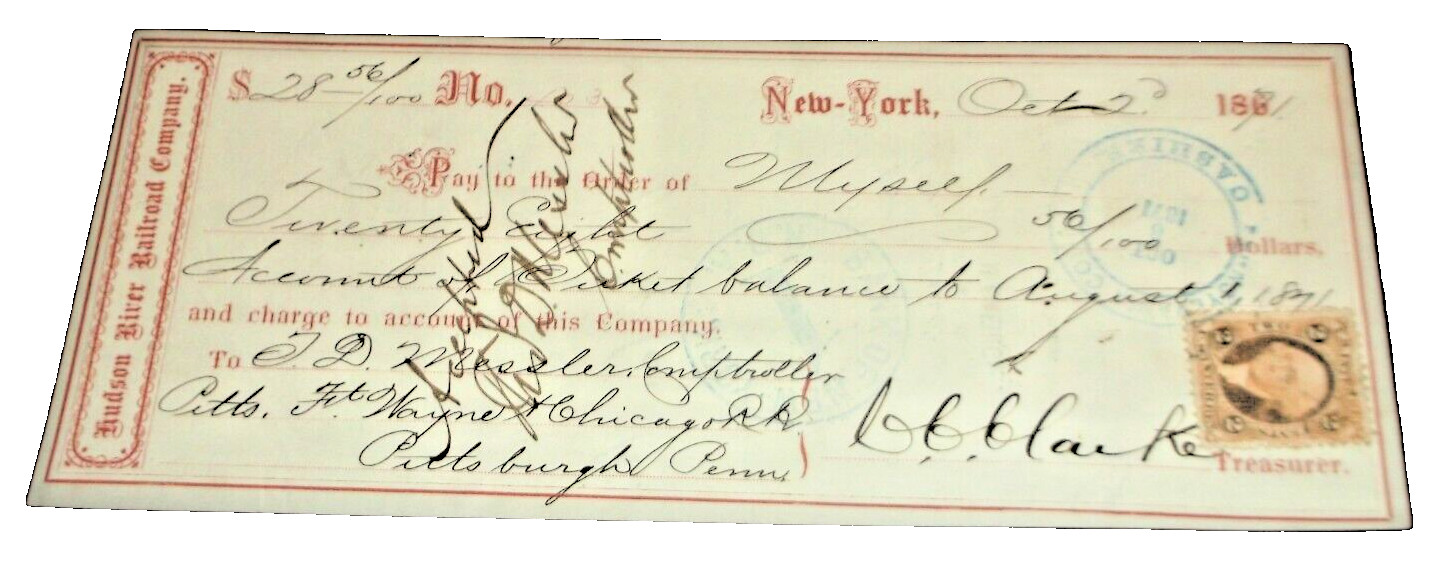 Hudson River Railroad Company.
$28 56/100 No. New-York, Oct 2d 1871.
Pay to the Order of Myself —
Twenty Eight 56/100 Dollars.
Account of Ticket balance to August 1, 1871
and charge to account of this Company.
To T. D. Messler, Comptroller
Pitts. Ft Wayne & Chicago R.R.
Pittsburgh Penn.
C. C. Clarke
Treasurer.
Accepted
Messler
Comptroller
OCT
6
1871
TWO